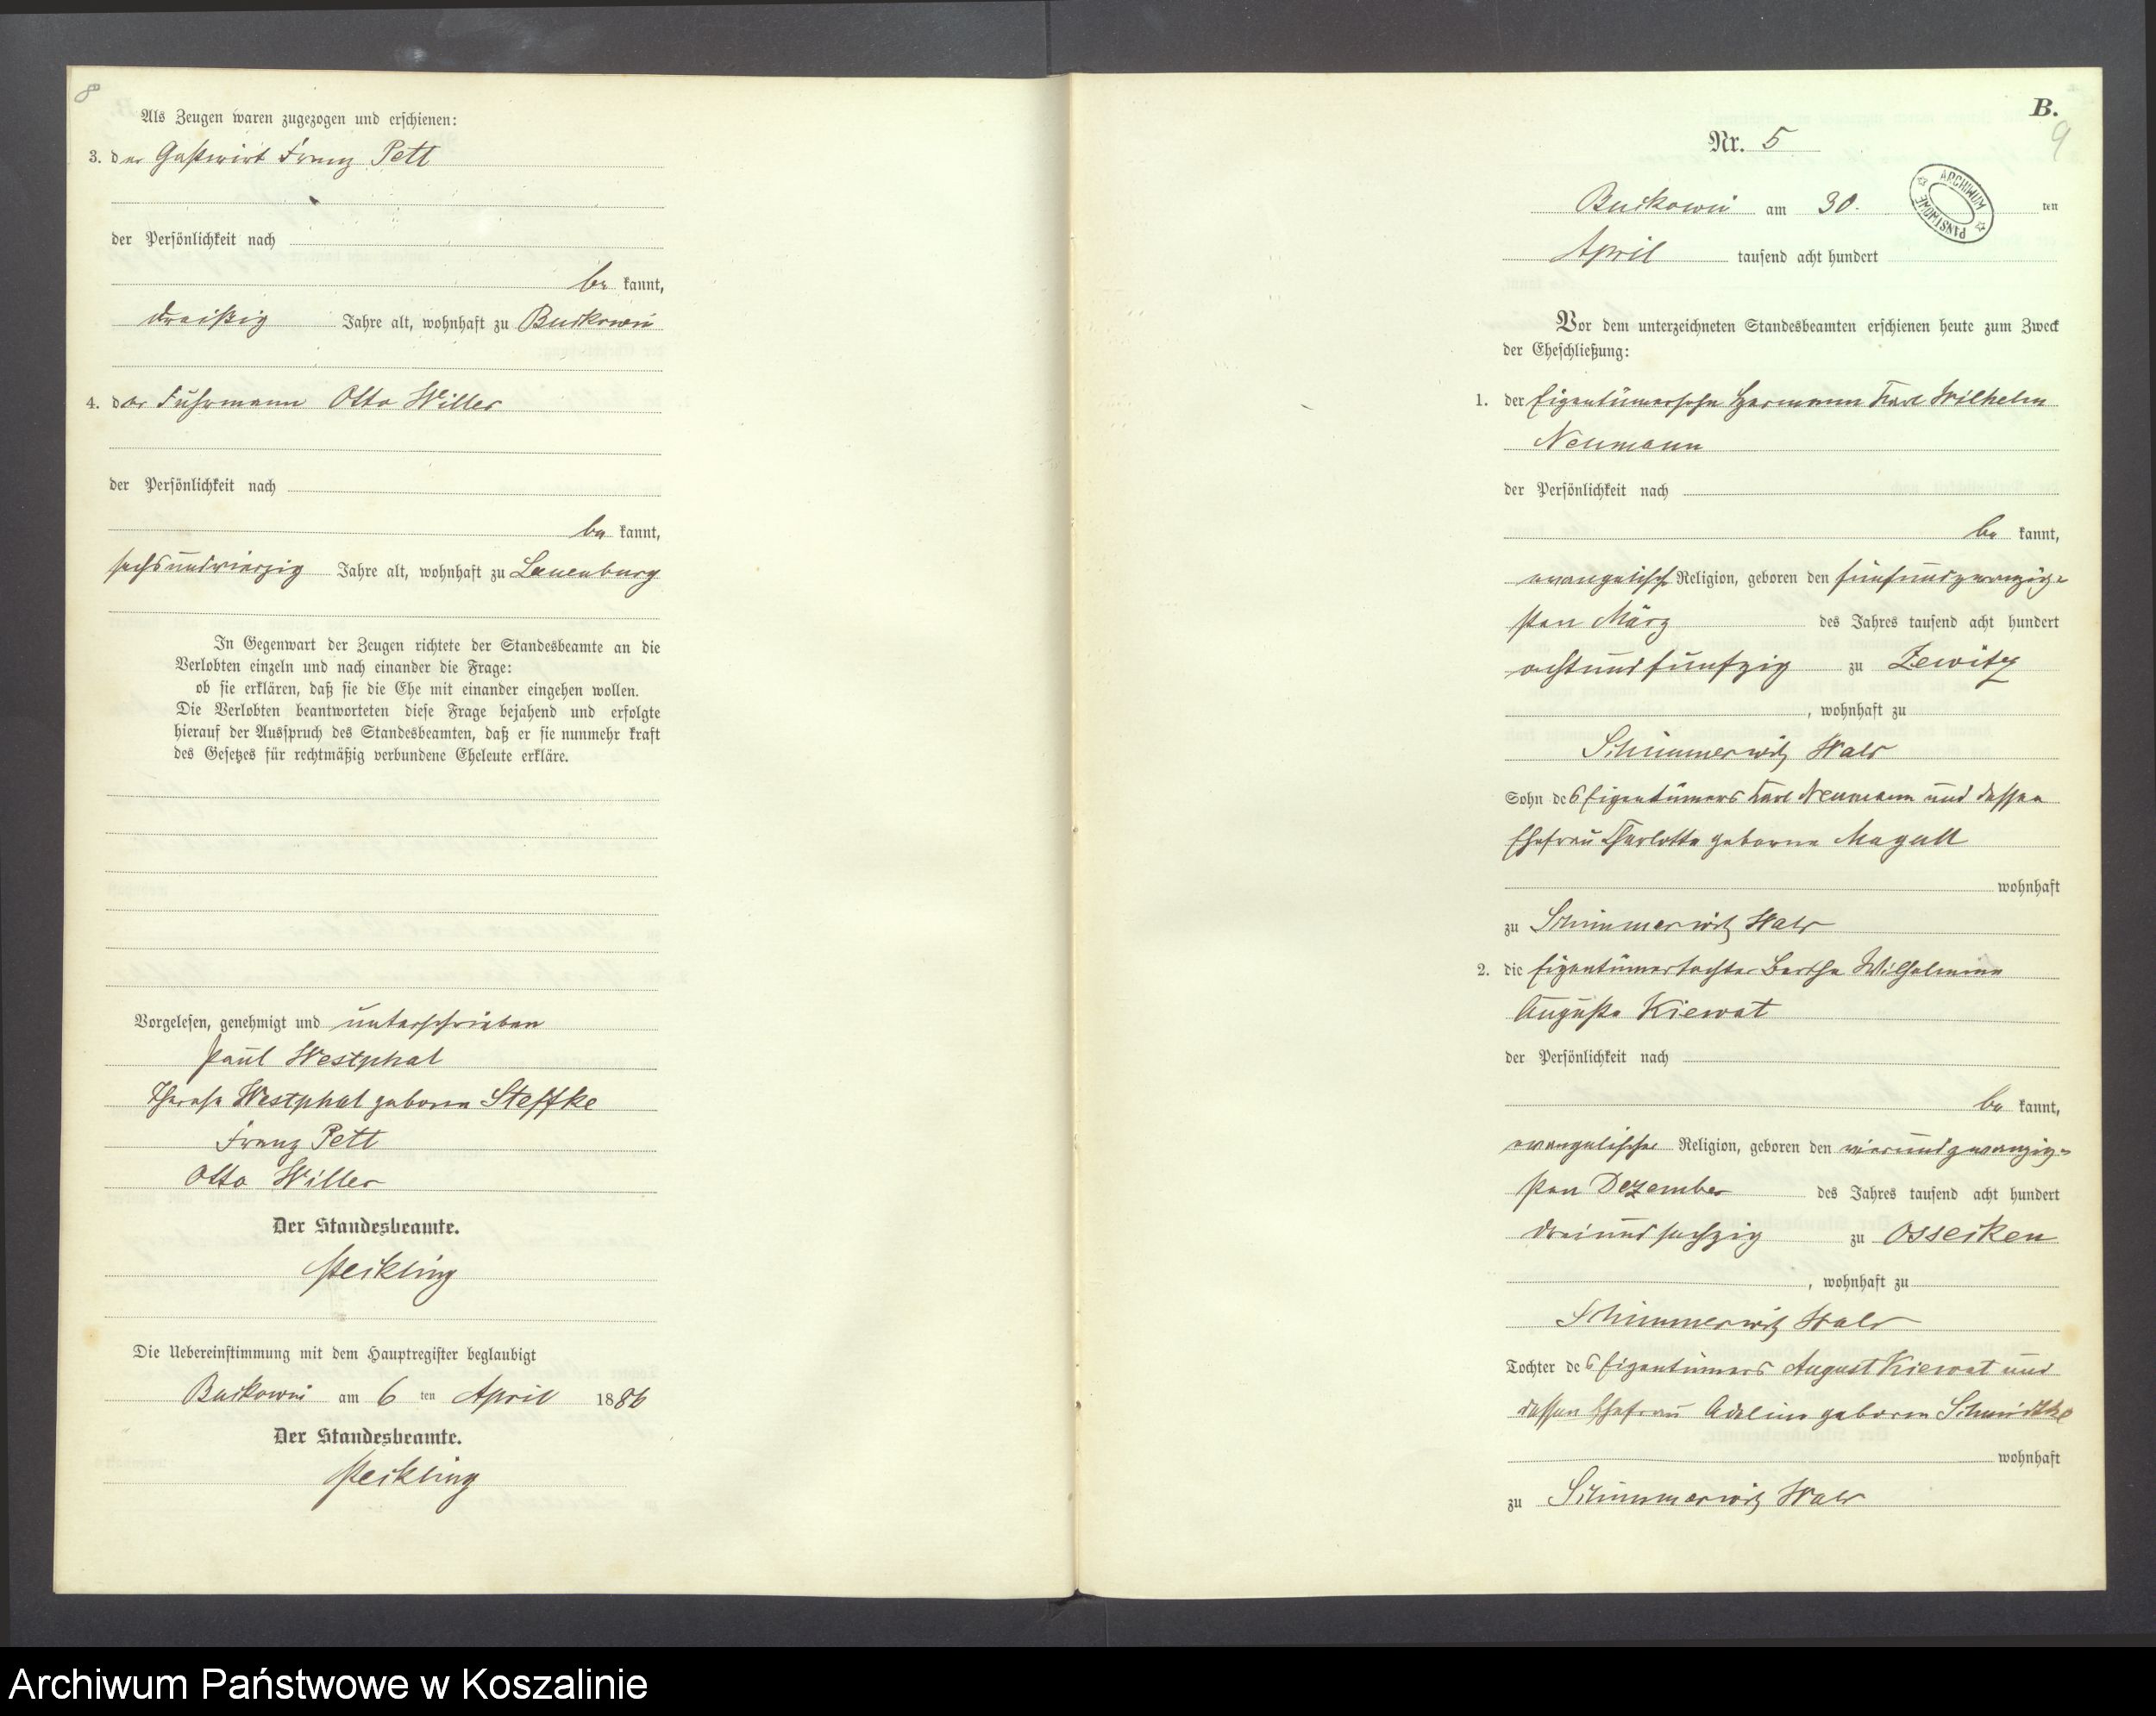 8
Als Zeugen waren zugezogen und erschienen:
3. der Gastwirt Franz Pett
der Persönlichkeit nach
be kannt,
dreißig Jahre alt, wohnhaft zu Buckowin
4. der Fuhrmann Otto Willer
der Persönlichkeit nach
be kannt,
sechsundvierzig Jahre alt, wohnhaft zu Lauenburg
In Gegenwart der Zeugen richtete der Standesbeamte an die
Verlobten einzeln und nach einander die Frage:
ob sie erklären, daß sie die Ehe mit einander eingehen wollen.
Die Verlobten beantworteten diese Frage bejahend und erfolgte
hierauf der Ausspruch des Standesbeamten, daß er sie nunmehr kraft
des Gesetzes für rechtmäßig verbundene Eheleute erkläre.
Vorgelesen, genehmigt und unterschrieben
Paul Westphal
Therese Westphal geborn Steffke
Franz Pett
Otto Willer
Der Standesbeamte.
Die Uebereinstimmung mit dem Hauptregister beglaubigt
Buckowin am 6 ten April 1886
Der Standesbeamte.
B.
9
Nr. 5
ARCHIWUM PAŃSTWOWE
Buckowin am 30. ten
April tausend acht hundert
Vor dem unterzeichneten Standesbeamten erschienen heute zum Zweck
der Eheschließung:
1. der Eigentümersohn Hermann Karl Wilhelm
Neumann
der Persönlichkeit nach
be kannt,
evangelisch Religion, geboren den fünfundzwanzig-
sten März des Jahres tausend acht hundert
achtundfünfzig zu Zewitz
, wohnhaft zu
Schimmerwitz Wald
Sohn des Eigentümers Karl Neumann und dessen
Ehefrau Charlotte geborne Magull
wohnhaft
zu Schimmerwitz Wald
2. die Eigentümertochter Bertha Wilhelmine
Auguste Kiewat
der Persönlichkeit nach
be kannt,
evangelische Religion, geboren den vierundzwanzig-
sten Dezember des Jahres tausend acht hundert
dreiundsechzig zu Ossecken
, wohnhaft zu
Schimmerwitz Wald
Tochter des Eigentümers August Kiewat und
dessen Ehefrau Adeline geborn Schmidtke
wohnhaft
zu Schimmerwitz Wald
Archiwum Państwowe w Koszalinie